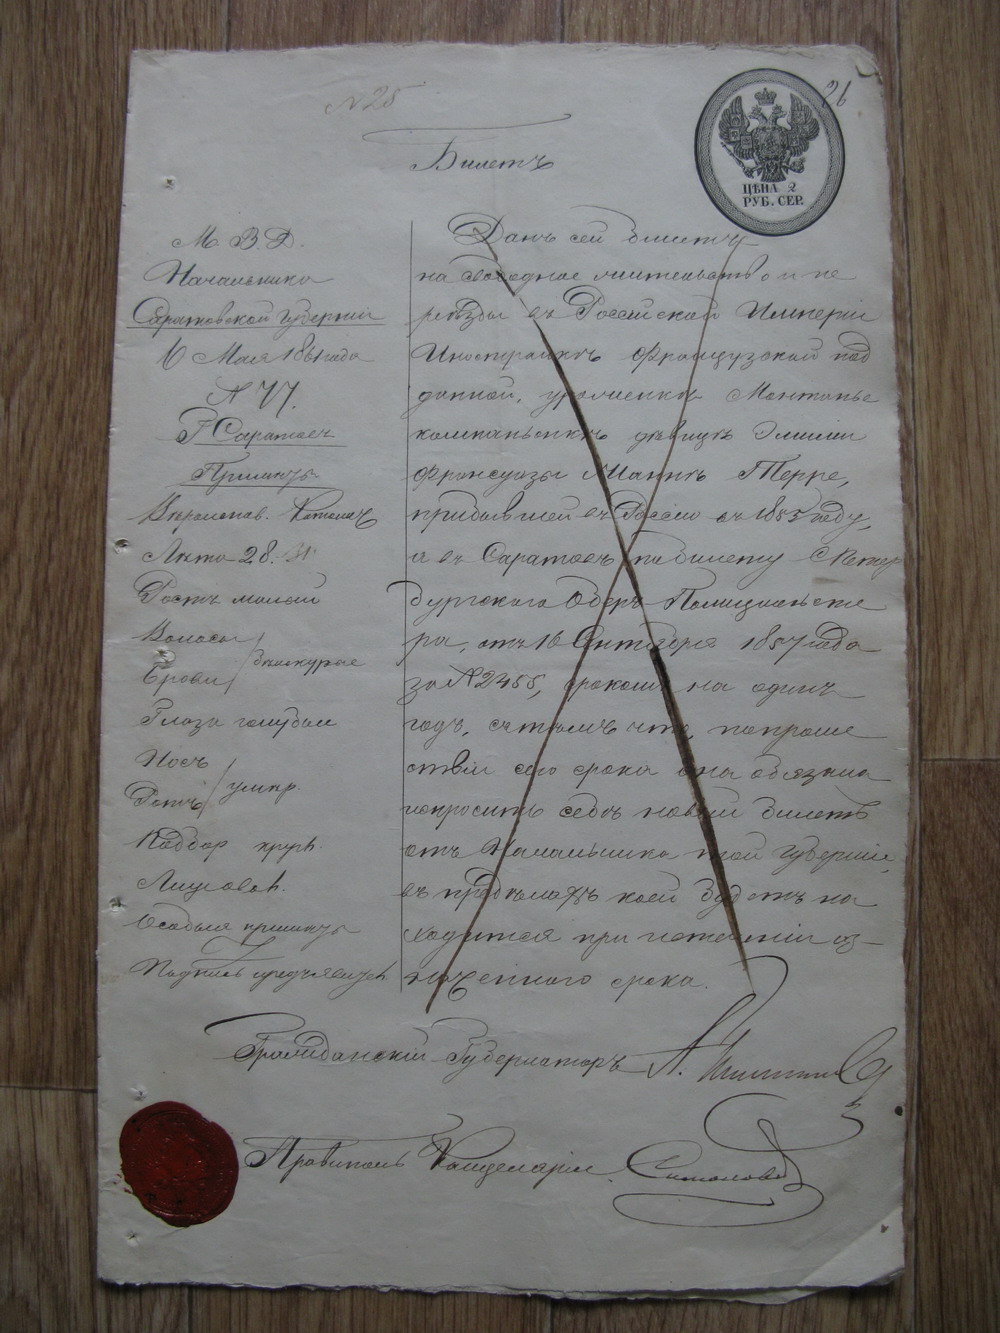 N 25
26
Билетъ
ЦѢНА 2
РУБ. СЕР.
М. В. Д.
Начальника
Саратовской Губерніи
Мая 1861 года
N 77.
Г. Саратовъ
Примѣты
Вѣроисповѣд. Католич.
Лѣта 28.
Ростъ малый
Волосы
Брови
бѣлокурые
Глаза голубые
Носъ
Ротъ
умѣр.
Подбор. кругл.
Лицо
Особыя примѣты
Подпись предъявителя
Данъ сей билетъ
на свободное жительство и пе
реѣзды въ Россійской Имперіи
Иностранкѣ Французской под
данной, уроженкѣ Монтанье
компаньонкѣ дѣвицѣ Эмиліи
Франсуазѣ Маннѣ Терре,
прибывшей въ Россію въ 1853 году,
а въ Саратовъ по билету С Петер
бургскаго Оберъ Полицмейсте
ра, отъ 16 Октября 1857 года
за N 2455, срокомъ на одинъ
годъ, съ тѣмъ что, по проше
ствіи сего срока она обязана
испросить себѣ новый билетъ
отъ Начальника той Губерніи,
въ предѣлахъ коей будетъ на
ходится при истеченіи оз-
наченного срока.
Гражданскій Губернаторъ
Правитель Канцеляріи